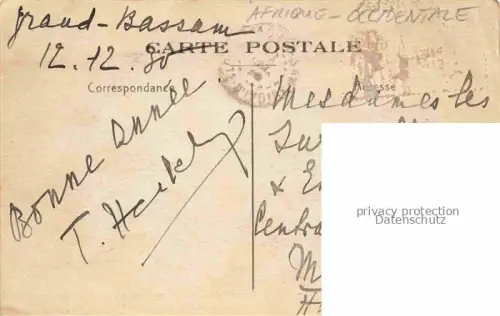 Grand-Bassam
AFRIQUE-OCCIDENTALE
12.12.30
CARTE POSTALE
Correspondance
Adresse
Bonne année
T.
Mesdames les
&
Centra
M
H
privacy protection
Datenschutz